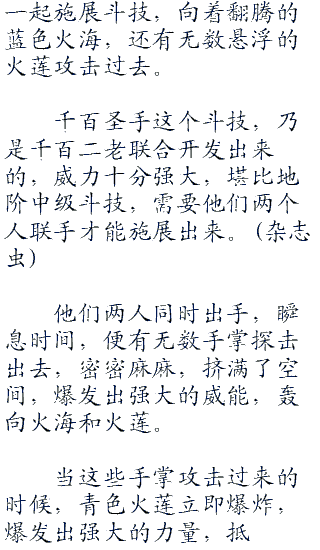 一起施展斗技，向着翻腾的
蓝色火海，还有无数悬浮的
火莲攻击过去。
千百圣手这个斗技，乃
是千百二老联合开发出来
的，威力十分强大，堪比地
阶中级斗技，需要他们两个
人联手才能施展出来。(杂志
虫)
他们两人同时出手，瞬
息时间，便有无数手掌探击
出去，密密麻麻，挤满了空
间，爆发出强大的威能，轰
向火海和火莲。
当这些手掌攻击过来的
时候，青色火莲立即爆炸，
爆发出强大的力量，抵